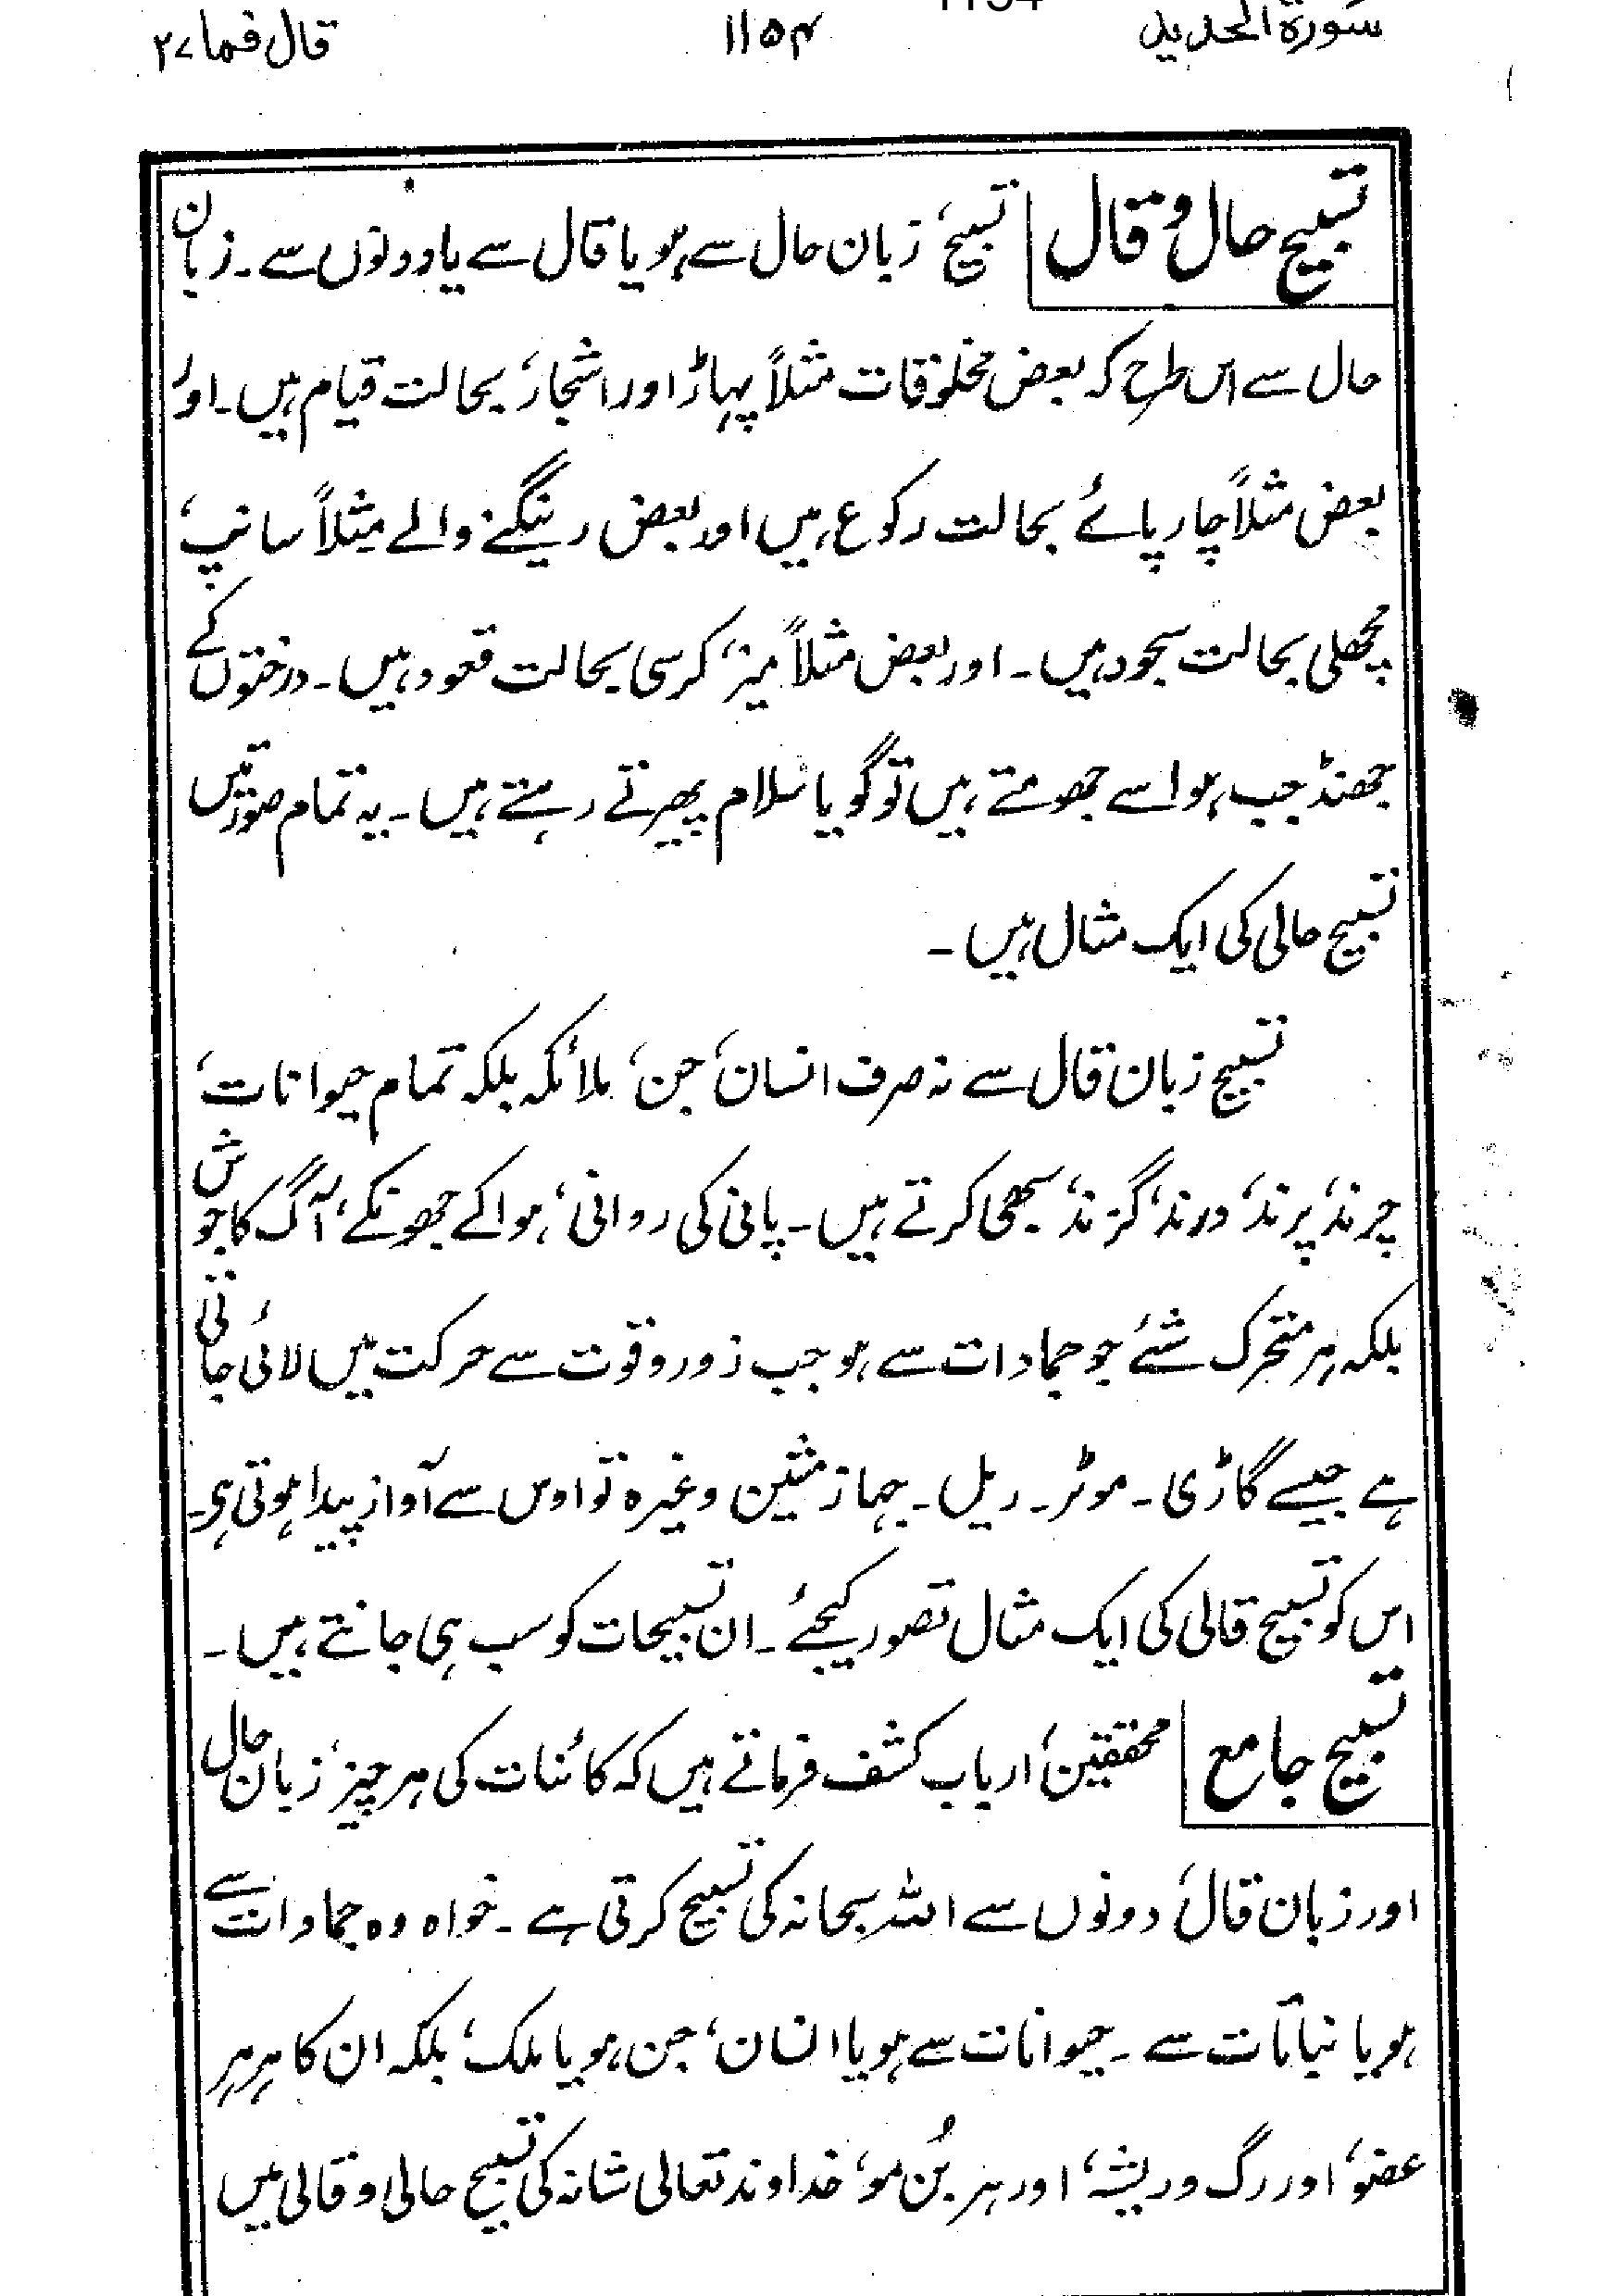 سورة الحدید ۱۱۵۴ قال فما ۲۷
تسبیح حال و قال تسبیح، زبان حال سے ہو یا قال سے یا دونوں سے۔ زبان
حال سے اس طرح کہ بعض مخلوقات مثلاً پہاڑ اور اشجار، بحالت قیام ہیں۔ اور
بعض مثلاً چارپائے بحالت رکوع ہیں اور بعض رینگنے والے مثلاً سانپ،
مچھلی بحالت سجود ہیں۔ اور بعض مثلاً میز، کرسی بحالت قعود ہیں۔ درختوں کے
جھنڈ جب ہوا سے جھومتے ہیں تو گویا سلام پھیرتے رہتے ہیں۔ یہ تمام صورتیں
تسبیح حالی کی ایک مثال ہیں۔
تسبیح زبان قال سے نہ صرف انسان، جن، ملائکہ بلکہ تمام حیوانات،
چرند، پرند، درند، گزند، سبھی کرتے ہیں۔ پانی کی روانی، ہوا کے جھونکے، آگ کا جوش
بلکہ ہر متحرک شئے جو جمادات سے ہو جب زور و قوت سے حرکت میں لائی جاتی
ہے جیسے گاڑی۔ موٹر۔ ریل۔ جہاز مشین وغیرہ تو اوس سے آواز پیدا ہوتی ہی۔
اس کو تسبیح قالی کی ایک مثال تصور کیجئے۔ ان تسبیحات کو سب ہی جانتے ہیں۔
تسبیح جامع محققین، ارباب کشف فرماتے ہیں کہ کائنات کی ہر چیز، زبان حال
اور زبان قال، دونوں سے اللہ سبحانہ کی تسبیح کرتی ہے۔ خواہ وہ جمادات سے
ہو یا نباتات سے۔ حیوانات سے ہو یا انسان، جن ہو یا ملک، بلکہ ان کا ہر ہر
عضو، اور رگ و ریشہ، اور ہر بُن مو، خداوند تعالی شانہ کی تسبیح حالی و قالی میں